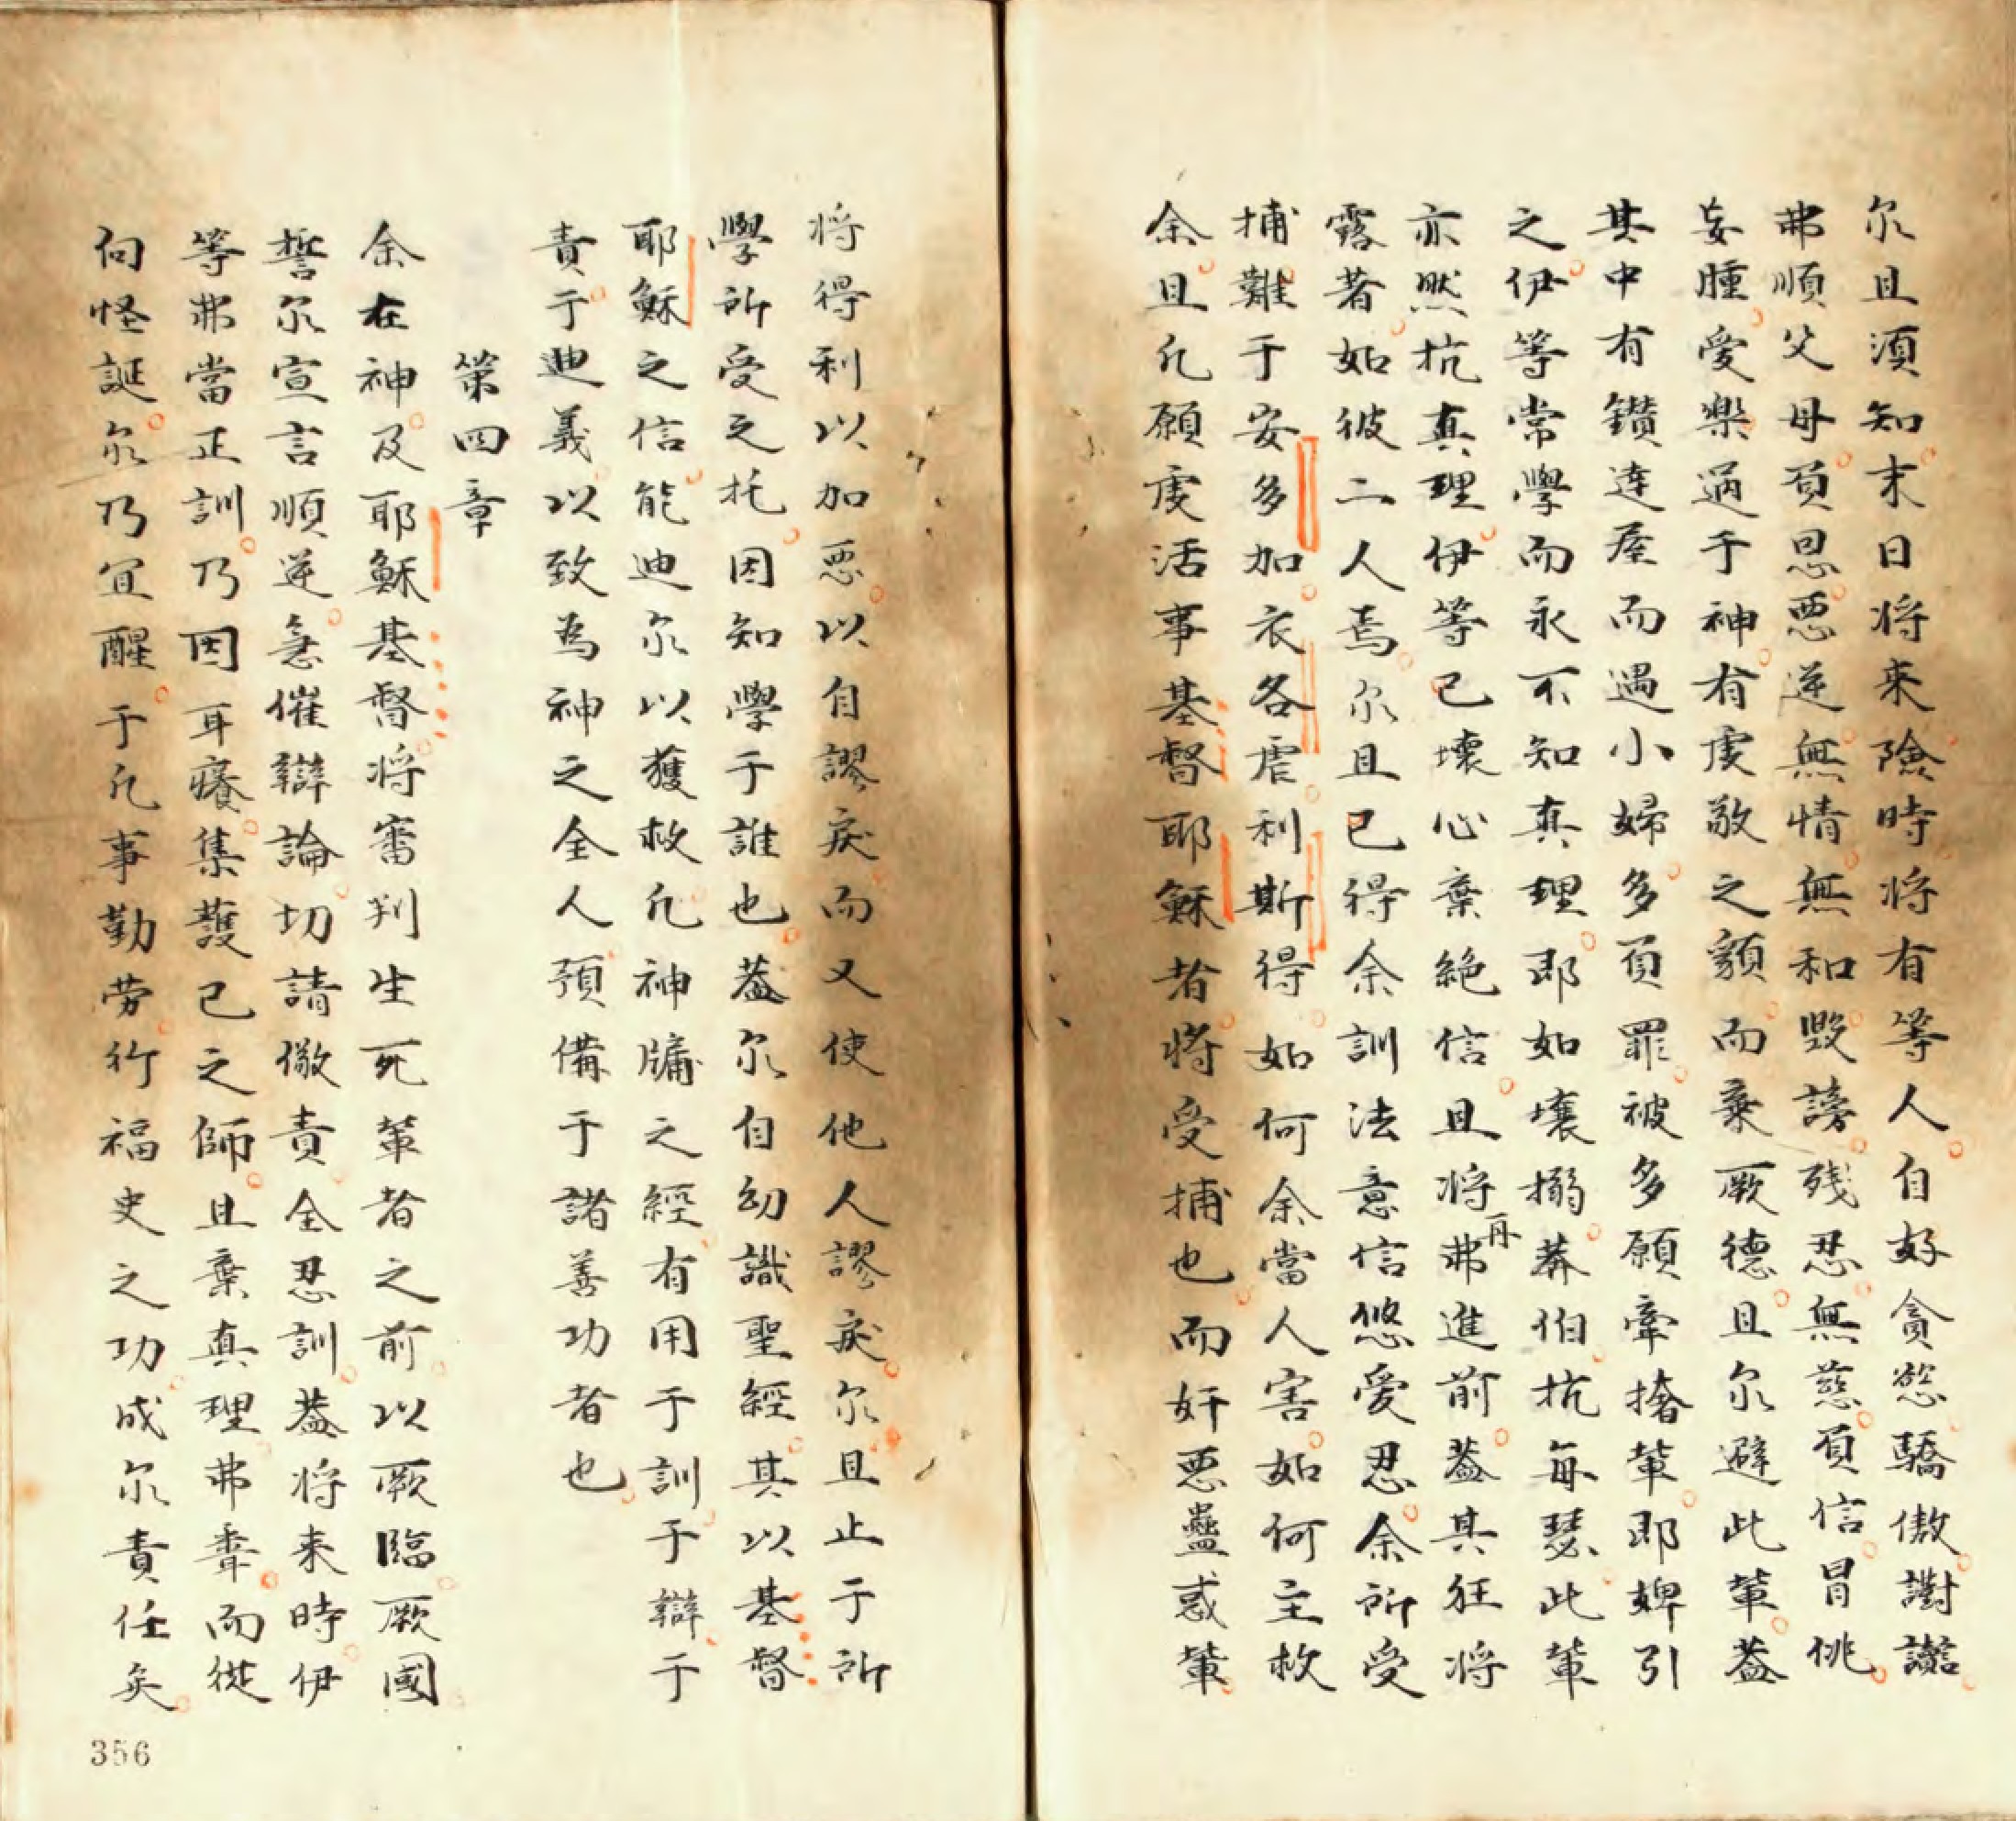 尔且須知末日将来險時将有等人自好貪慾驕傲謝讟
弗順父母負恩惡逆無情無和毀謗残忍無慈負信冒佻
妄腫愛樂過于神有虔敬之貌而棄厥德且尔避此軰蓋
其中有鑚達屋而遇小婦多負罪被多願牽撦軰即婢引
之伊等常學而永不知真理即如壤搦莽伯抗每瑟此軰
亦然抗真理伊等已壞心棄絶信且将弗再進前蓋其狂将
露著如彼二人焉尔且已得余訓法意信悠愛忍余所受
捕難于安多加衣各虐利斯得如何余當人害如何主救
余且凢願虔活事基督耶穌者将受捕也而奸惡蠱惑軰
将得利以加惡以自謬戾而又使他人謬戾尔且止于所
學所受之托因知學于誰也蓋尔自幼識聖經其以基督
耶穌之信能迪尔以獲救凢神牗之經有用于訓于辯于
責于迪義以致為神之全人預備于諸善功者也
第四章
余在神及耶穌基督将審判生死軰者之前以厥臨厥國
誓尔宣言順逆急催辯論切請儆責全忍訓蓋将来時伊
等弗當正訓乃因耳癢集護己之師且棄真理弗聽而從
向怪誕尔乃冝醒于凢事勤劳行福史之功成尔責任矣
356